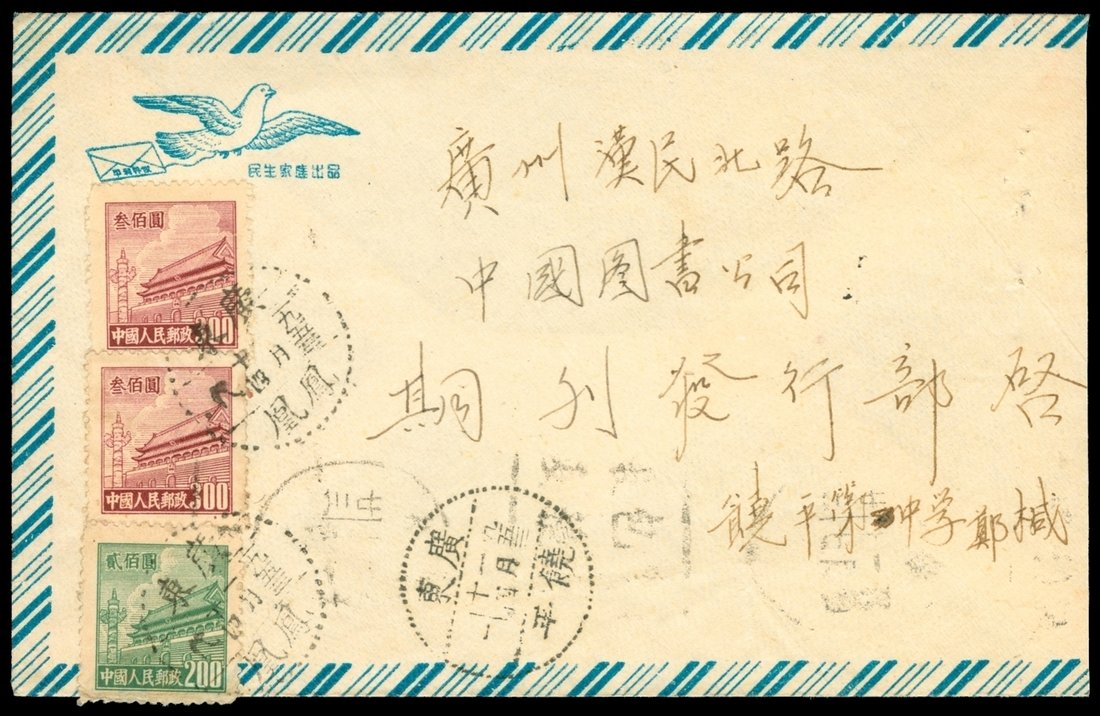 民生家庭出品
叁佰圓
中國人民郵政 300
叁佰圓
中國人民郵政 300
貳佰圓
中國人民郵政 200
廣州漢民北路
中國图書公司
期刊發行部啓
饒平第一中学鄭椷
廣東
鳳凰
廣東
鳳凰
廣東
饒平